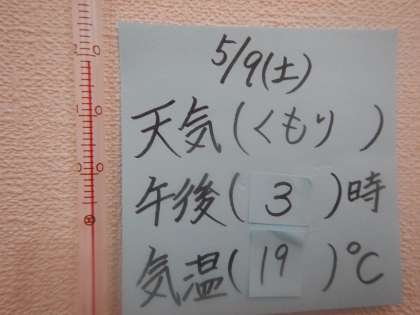 5/9(土)
天気(くもり )
午後( 3 )時
気温( 19 )℃